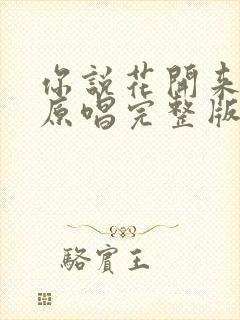 你說花開来
原唱完整版
駱賓王